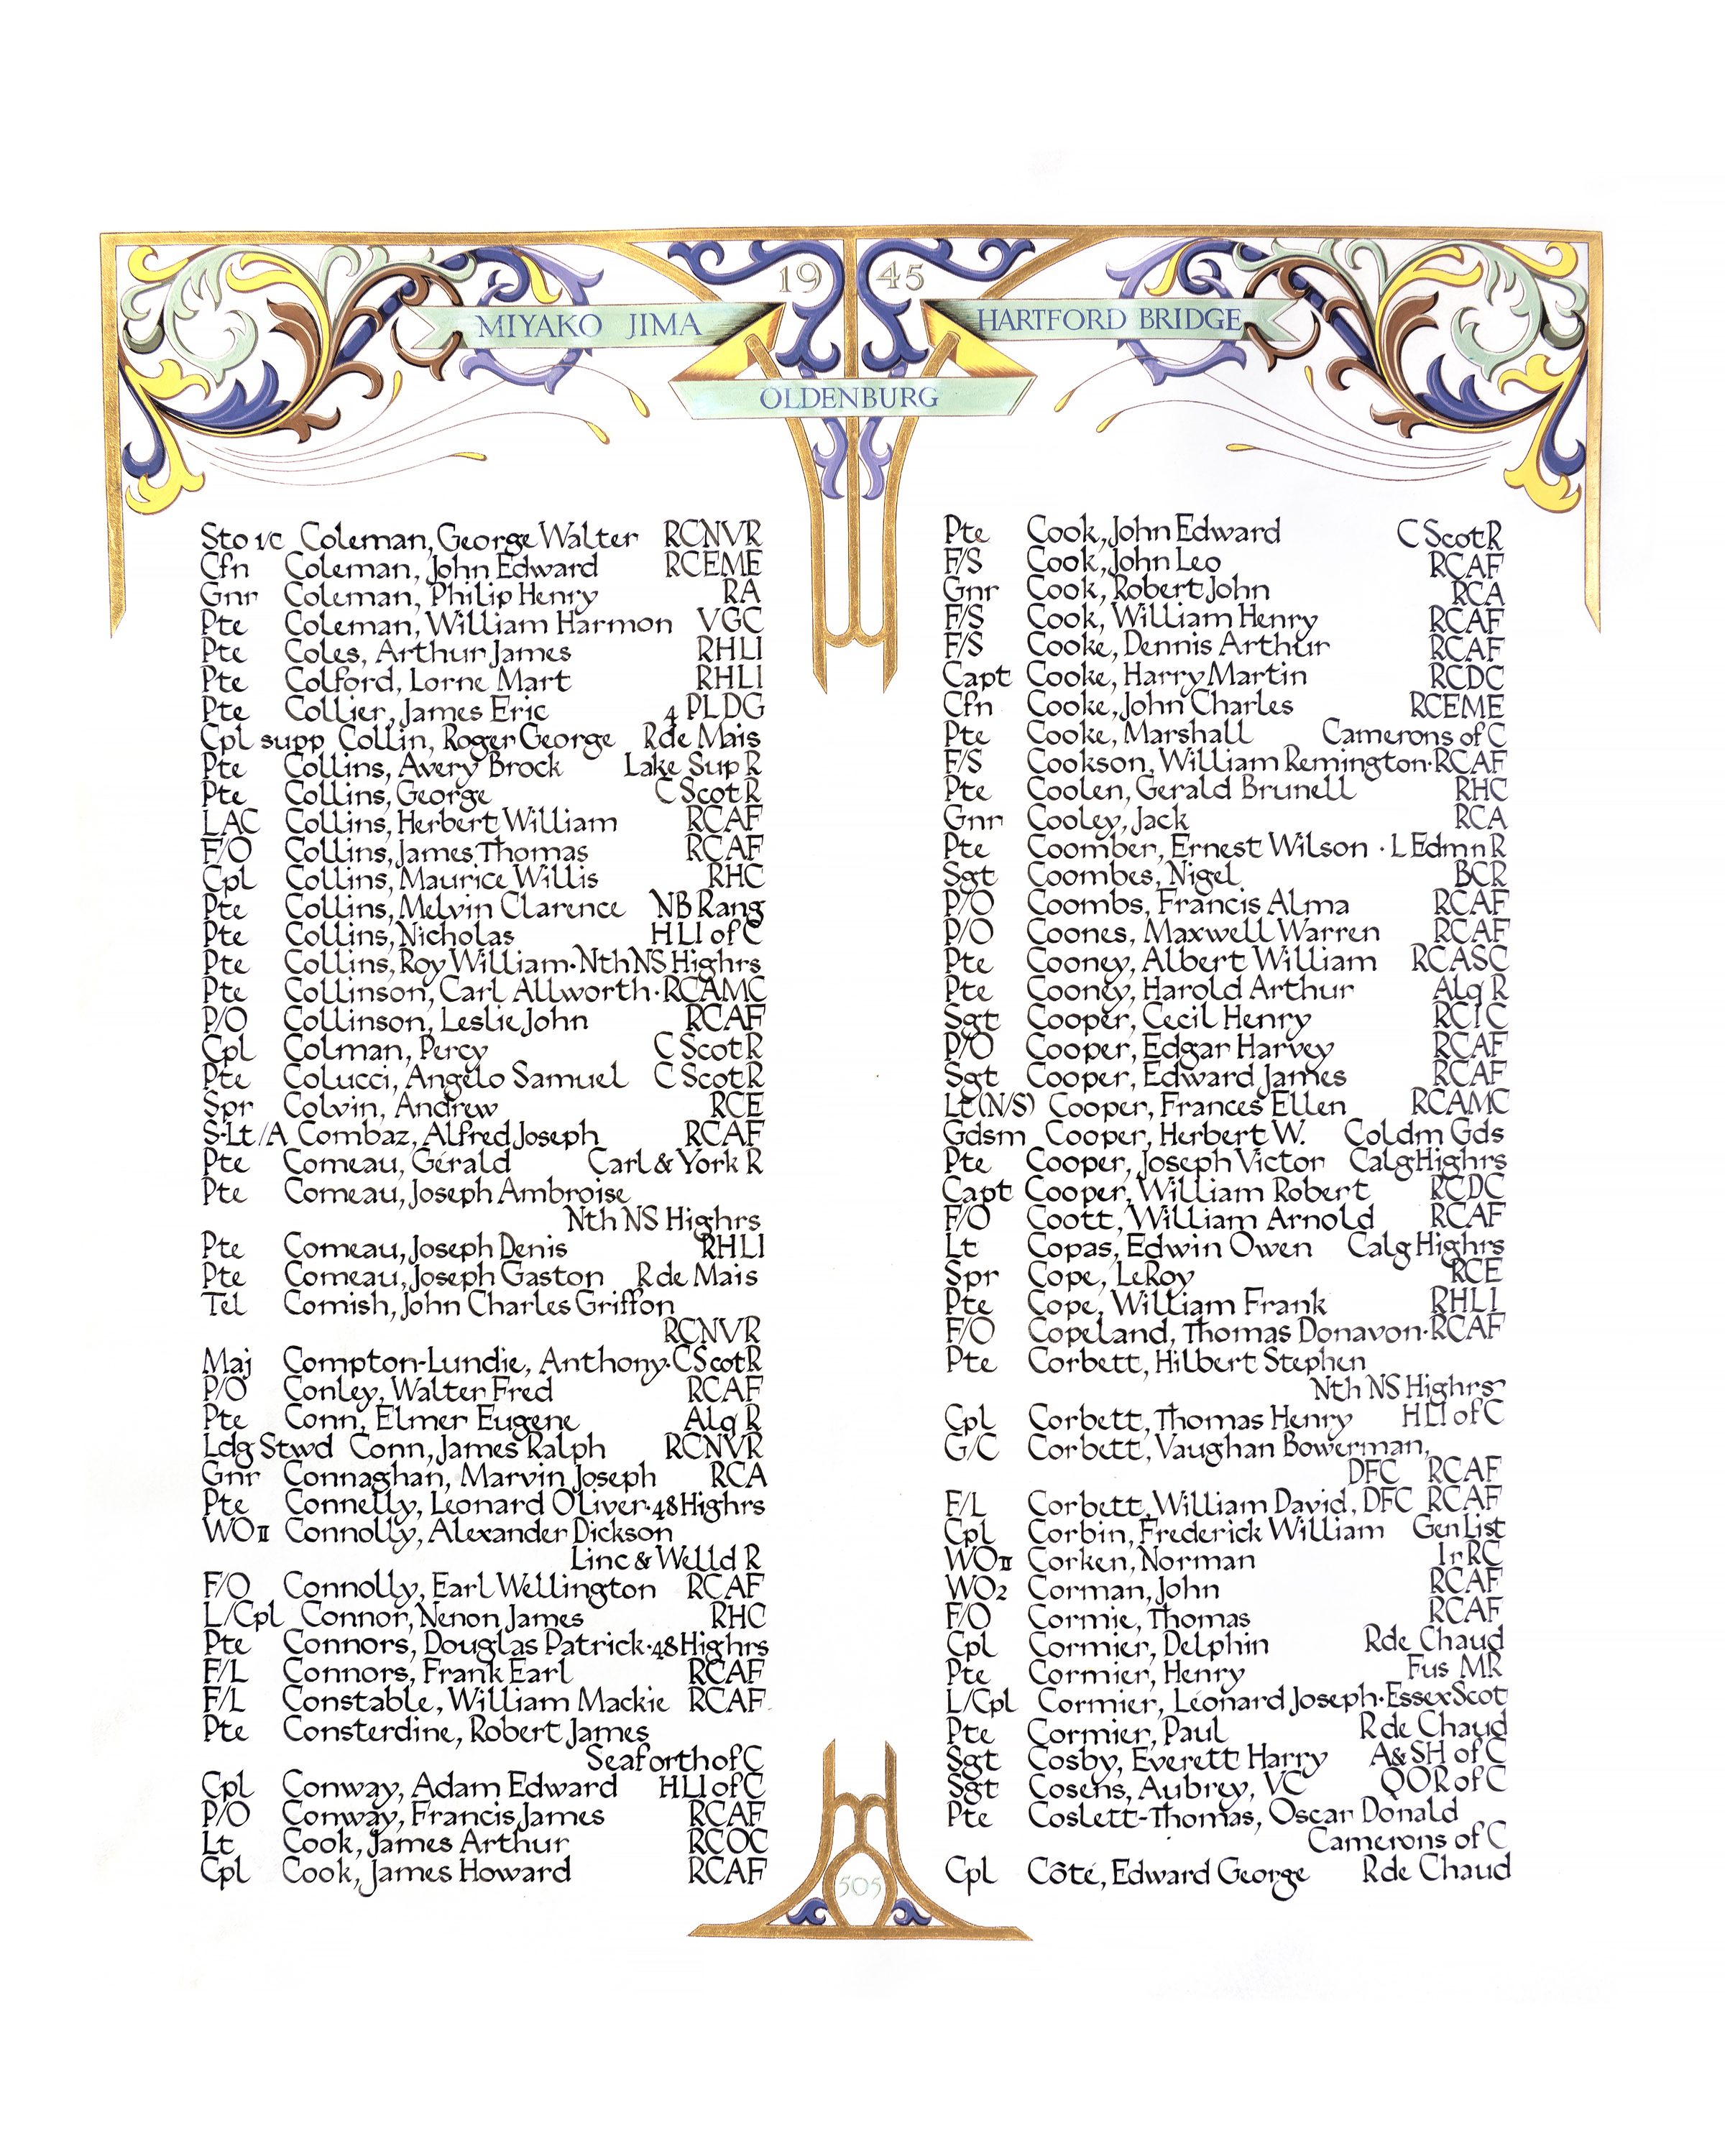 19 45
MIYAKO JIMA
HARTFORD BRIDGE
OLDENBURG
Sto 1/c Coleman, George Walter RCNVR
Cfn Coleman, John Edward RCEME
Gnr Coleman, Philip Henry RA
Pte Coleman, William Harmon VGC
Pte Coles, Arthur James RHLI
Pte Colford, Lorne Mart RHLI
Pte Collier, James Eric 4 PLDG
Cpl supp Collin, Roger George R de Mais
Pte Collins, Avery Brock Lake Sup R
Pte Collins, George C Scot R
LAC Collins, Herbert William RCAF
F/O Collins, James Thomas RCAF
Cpl Collins, Maurice Willis RHC
Pte Collins, Melvin Clarence NB Rang
Pte Collins, Nicholas HLI of C
Pte Collins, Roy William·Nth NS Highrs
Pte Collinson, Carl Allworth·RCAMC
P/O Collinson, Leslie John RCAF
Cpl Colman, Percy C Scot R
Pte Colucci, Angelo Samuel C Scot R
Spr Colvin, Andrew RCE
S·Lt/A Combaz, Alfred Joseph RCAF
Pte Comeau, Gérald Carl & York R
Pte Comeau, Joseph Ambroise
Nth NS Highrs
Pte Comeau, Joseph Denis RHLI
Pte Comeau, Joseph Gaston R de Mais
Tel Comish, John Charles Griffon
RCNVR
Maj Compton-Lundie, Anthony·C Scot R
P/O Conley, Walter Fred RCAF
Pte Conn, Elmer Eugene Alq R
Ldg Stwd Conn, James Ralph RCNVR
Gnr Connaghan, Marvin Joseph RCA
Pte Connelly, Leonard Oliver·48 Highrs
WO II Connolly, Alexander Dickson
Linc & Welld R
F/O Connolly, Earl Wellington RCAF
L/Cpl Connor, Nenon James RHC
Pte Connors, Douglas Patrick·48 Highrs
F/L Connors, Frank Earl RCAF
F/L Constable, William Mackie RCAF
Pte Consterdine, Robert James
Seaforth of C
Cpl Conway, Adam Edward HLI of C
P/O Conway, Francis James RCAF
Lt Cook, James Arthur RCOC
Cpl Cook, James Howard RCAF
Pte Cook, John Edward C Scot R
F/S Cook, John Leo RCAF
Gnr Cook, Robert John RCA
F/S Cook, William Henry RCAF
F/S Cooke, Dennis Arthur RCAF
Capt Cooke, Harry Martin RCDC
Cfn Cooke, John Charles RCEME
Pte Cooke, Marshall Camerons of C
F/S Cookson, William Remington·RCAF
Pte Coolen, Gerald Brunell RHC
Gnr Cooley, Jack RCA
Pte Coomber, Ernest Wilson · L Edmn R
Sgt Coombes, Nigel BCR
P/O Coombs, Francis Alma RCAF
P/O Coones, Maxwell Warren RCAF
Pte Cooney, Albert William RCASC
Pte Cooney, Harold Arthur Alq R
Sgt Cooper, Cecil Henry RCIC
P/O Cooper, Edgar Harvey RCAF
Sgt Cooper, Edward James RCAF
Lt (N/S) Cooper, Frances Ellen RCAMC
Gdsm Cooper, Herbert W. Coldm Gds
Pte Cooper, Joseph Victor Calg Highrs
Capt Cooper, William Robert RCDC
F/O Coott, William Arnold RCAF
Lt Copas, Edwin Owen Calg Highrs
Spr Cope, LeRoy RCE
Pte Cope, William Frank RHLI
F/O Copeland, Thomas Donavon·RCAF
Pte Corbett, Hilbert Stephen
Nth NS Highrs
Cpl Corbett, Thomas Henry HLI of C
G/C Corbett, Vaughan Bowerman,
DFC RCAF
F/L Corbett, William David, DFC RCAF
Cpl Corbin, Frederick William Gen List
WO II Corken, Norman IrRC
WO2 Corman, John RCAF
F/O Cormie, Thomas RCAF
Cpl Cormier, Delphin R de Chaud
Pte Cormier, Henry Fus MR
L/Cpl Cormier, Léonard Joseph·Essex Scot
Pte Cormier, Paul R de Chaud
Sgt Cosby, Everett Harry A&SH of C
Sgt Cosens, Aubrey, VC QOR of C
Pte Coslett-Thomas, Oscar Donald
Camerons of C
Cpl Côté, Edward George R de Chaud
505